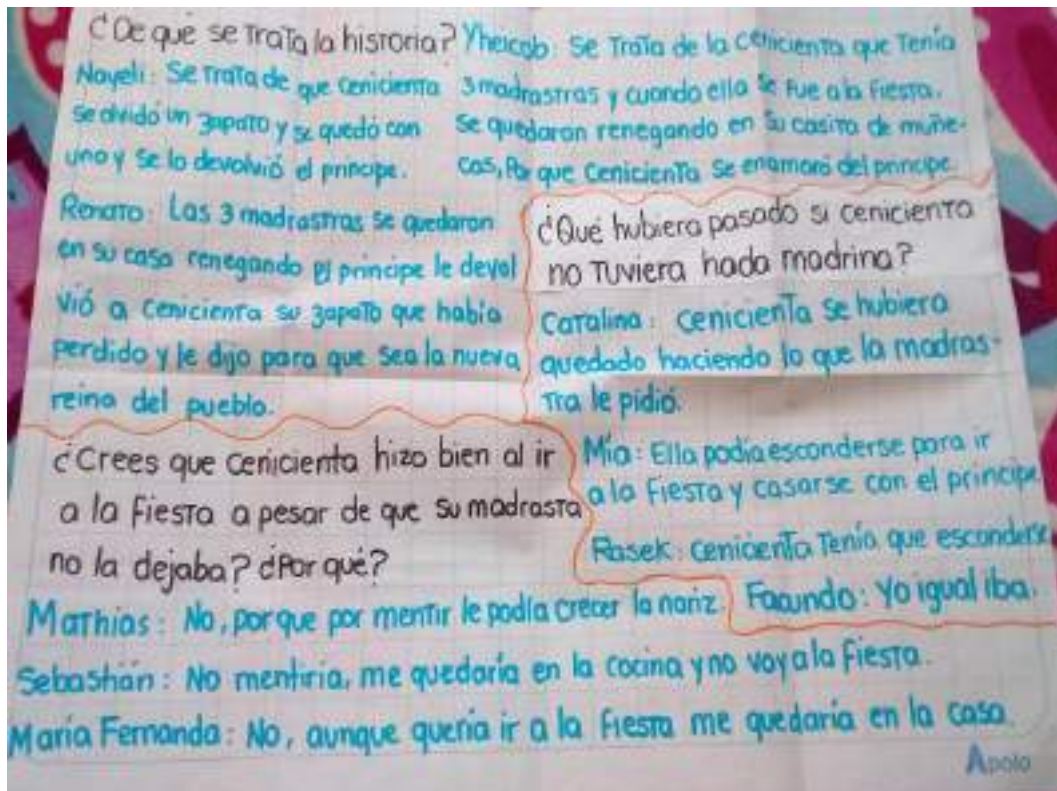 ¿De qué se trata la historia?
Nayeli: Se trata de que Cenicienta
se olvidó un zapato y se quedó con
uno y se lo devolvió el príncipe.
Yheicob: Se trata de la Cenicienta que tenía
3 madrastras y cuando ella se fue a la fiesta.
Se quedaron renegando en su casita de muñe-
cas, Por que Cenicienta se enamoró del príncipe.
Renato: Las 3 madrastras se quedaron
en su casa renegando el príncipe le devol
vió a Cenicienta su zapato que había
perdido y le dijo para que sea la nueva
reina del pueblo.
¿Qué hubiera pasado si cenicienta
no tuviera hada madrina?
Catalina: Cenicienta se hubiera
quedado haciendo lo que la madras-
tra le pidió.
Mía: Ella podía esconderse para ir
a la fiesta y casarse con el príncipe
Rasek: Cenicienta tenía que esconderse
Facundo: Yo igual iba.
¿Crees que Cenicienta hizo bien al ir
a la fiesta a pesar de que su madrasta
no la dejaba? ¿Por qué?
Mathias: No, por que por mentir le podía crecer la nariz.
Sebasthián: No mentiria, me quedaría en la cocina y no voy a la fiesta.
María Fernanda: No, aunque quería ir a la fiesta me quedaría en la casa.
Apolo